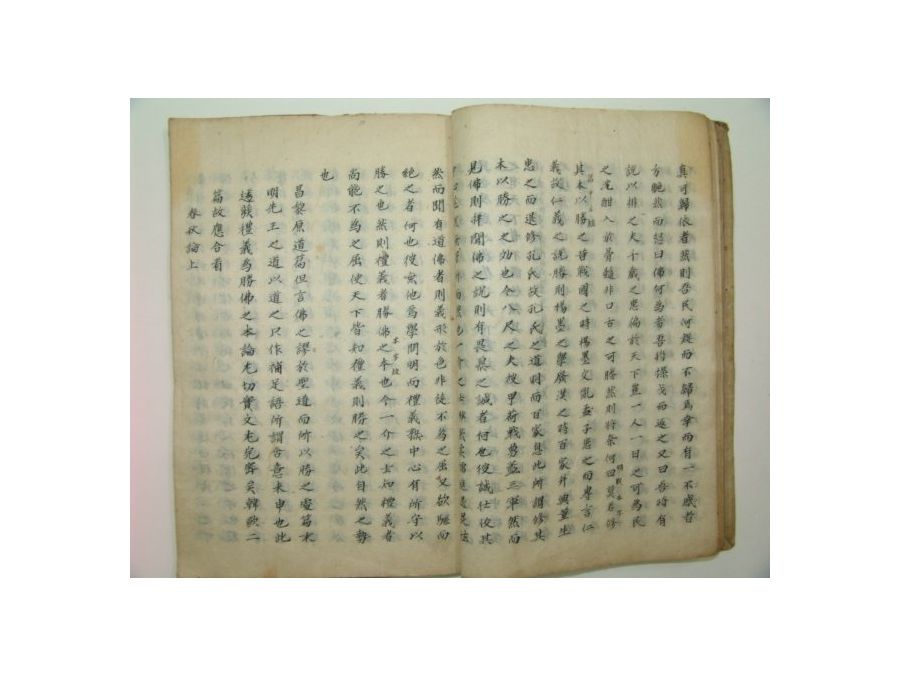 真可歸依者然則吾民何疑而不歸焉幸而有一不惑者
方艴然而怒曰佛何為者吾將操戈而逐之又曰吾將有
說以排之夫千歲之患偏於天下豈一人一日之可為民
之沈酣入於骨髓非口舌之可勝然則將奈何曰莫若修
其本以勝之昔戰國之時楊墨交亂孟子患之而專言仁
義故仁義之說勝則楊墨之學廢漢之時百家並興董生
患之而退修孔氏故孔氏之道明而百家息此所謂修其
本以勝之之効也今八尺之夫被甲荷戟勇盖三軍然而
見佛則拜聞佛之說則有畏慕之誠者何也彼誠仕佼其
然而聞有道佛者則義形於色非徒不為之屈又欲驅而
絶之者何也彼無他焉學問明而禮義熟中心有所守以
勝之也然則禮義者勝佛之本也今一介之士知禮義者
尚能不為之屈使天下皆知禮義則勝之矣此自然之勢
也
昌黎原道篇但言佛之謬於聖道而所以勝之處篇末
明先王之道以道之只作補足語所謂含意未申也此
透發禮義為勝佛之本論尤切實文尤完密矣韓歐二
篇故應合看
春秋論上